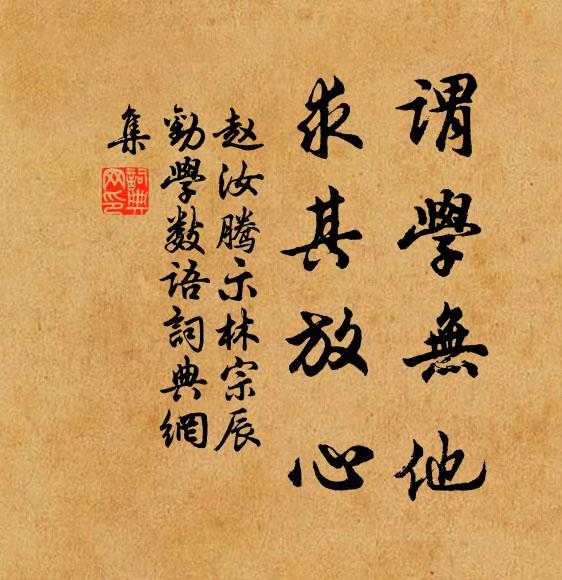 謂學無他
求其放心
赵汝腾示林宗辰
勸學数语詞典網
集
詞典
网印